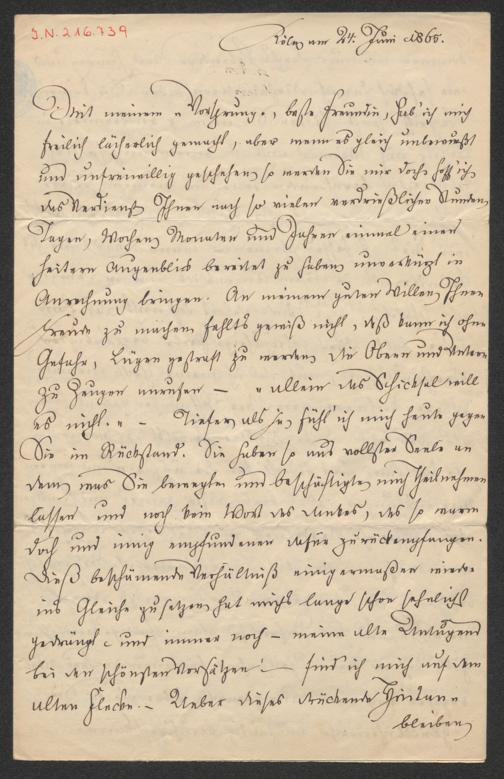 I.N. 216.739
Köln am 24. Juni 1865.
Mit meinem „Vorsprung“, beste Freundin, hab' ich mich
freilich lächerlich gemacht, aber wenn es gleich unbewußt
und unfreiwillig geschehen, so werden Sie mir doch, hoff' ich,
das Verdienst Ihnen nach so vielen verdrießlichen Stunden,
Tagen, Wochen, Monaten und Jahren einmal einen
heitern Augenblick bereitet zu haben, unverkürzt in
Anrechnung bringen. An meinem guten Willen, Ihnen
Freude zu machen fehlt's gewiß nicht, deß kann ich ohne
Gefahr, Lügen gestraft zu werden, die Obern und Untern
zu Zeugen anrufen — „allein das Schicksal will
es nicht.“ — Tiefer als je, fühl' ich mich heute gegen
Sie im Rückstand. Sie haben so aus vollster Seele an
dem, was Sie bewegte und beschäftigte, mich theilnehmen
lassen und noch kein Wort des Dankes, des so warm
doch und innig empfundenen dafür zurückempfangen.
Dieß beschämende Verhältniß einigermaßen wieder
ins Gleiche zu setzen, hat mich's lange schon sehnlichst
gedrängt, und immer noch — meine alte Untugend
bei den schönsten Vorsätzen! — find' ich mich auf dem
alten Flecke. — Ueber dieses drückende Hintan-
bleiben